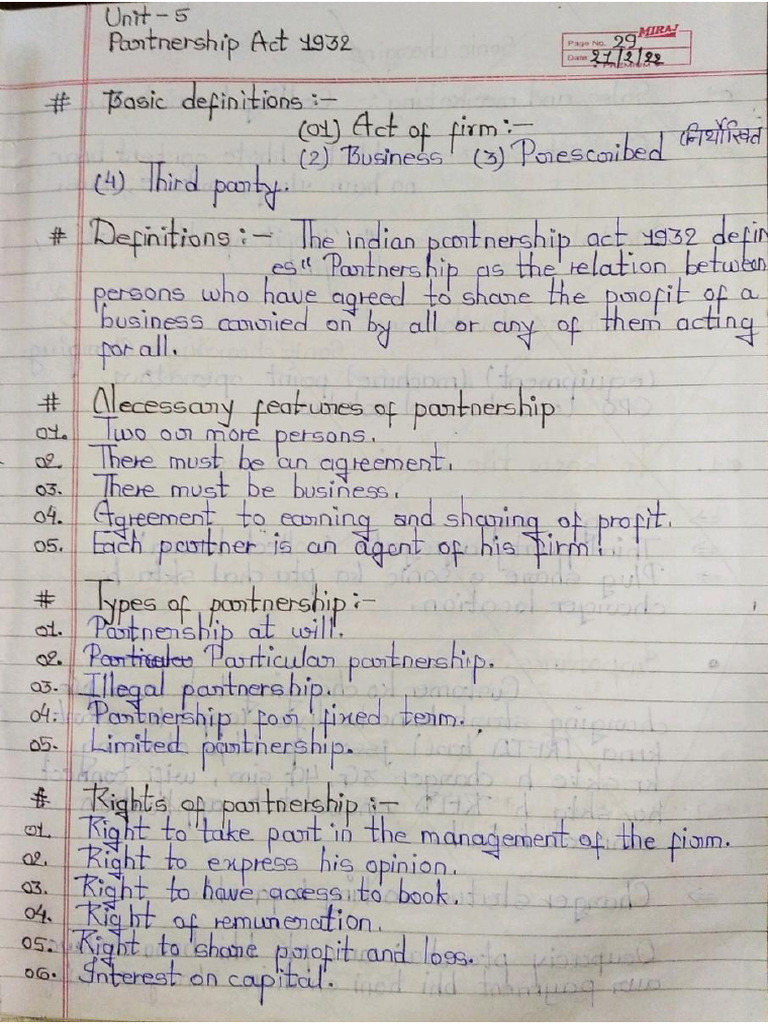 Unit-5
Partnership Act 1932
MIRAJ
Page No. 29
Date 27/2/22
PREMIUM
# Basic definitions :-
(01) Act of firm :-
(2) Business (3) Prescribed
(4) Third party.
# Definitions :- The indian partnership act 1932 defin
es" Partnership as the relation between
persons who have agreed to share the profit of a
business carried on by all or any of them acting
for all.
# Necessary features of partnership
01. Two or more persons.
02. There must be an agreement.
03. There must be business.
04. Agreement to earning and sharing of profit.
05. Each partner is an agent of his firm.
# Types of partnership :-
01. Partnership at will.
02. Particular partnership.
03. Illegal partnership.
04. Partnership for fixed term.
05. Limited partnership.
# Rights of partnership :-
01. Right to take part in the management of the firm.
02. Right to express his opinion.
03. Right to have access to book.
04. Right of remuneration.
05. Right to share profit and loss.
06. Interest on capital.